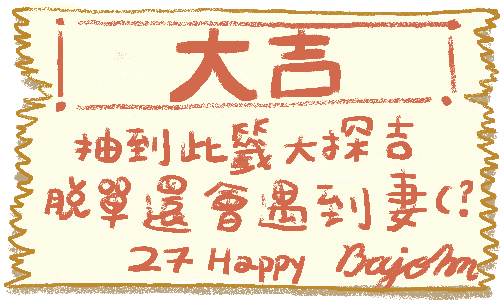 大吉
抽到此籤大探吉
脫單還會遇到妻(?
27 Happy Bajohn